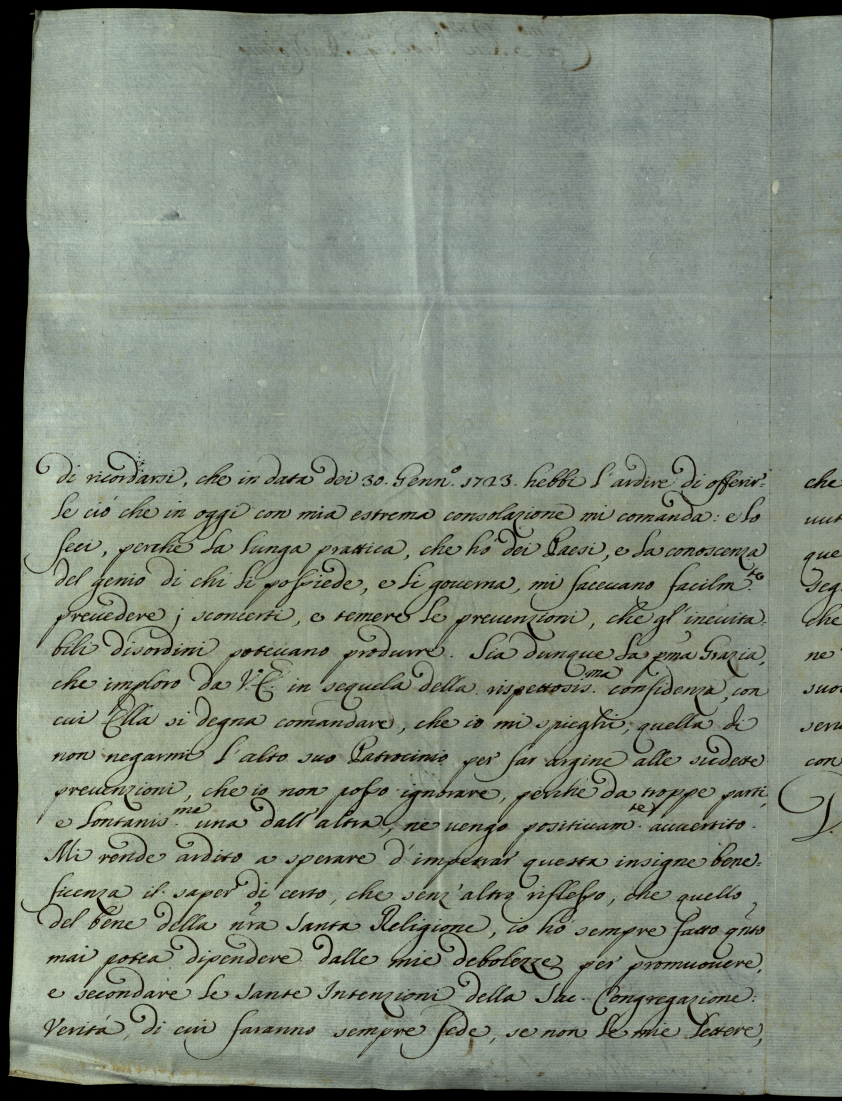 di ricordarsi, che in data dei 30. Genn.o 1723. hebbi l'ardire di offerir=
le ciò che in oggi con mia estrema consolazione mi comanda: e lo
feci, perche la lunga prattica, che ho dei Paesi, e la conoscenza
del genio di chi li possiede, e li governa, mi facevano facilm.te
prevedere i sconcerti, e temere le prevenzioni, che gl'inevita=
bili disordini potevano produrre. Sia dunque la p̃ma Grazia,
che imploro da V.E. in sequela della rispettosis.ma confidenza, con
cui Ella si degna comandare, che io mi spieghi; quella di
non negarmi l'alto suo Patrocinio per far argine alle sudette
prevenzioni, che io non posso ignorare, perche da troppe parti,
e lontanis.me una dall'altra, ne vengo positivam.te avvertito.
Mi rende ardito a sperare d'impetrar questa insigne bene=
ficenza il saper di certo, che senz'altro riflesso, che quello
del bene della nr̃a Santa Religione, io ho sempre fatto qñto
mai potea dipendere dalle mie debolezze per promuovere,
e secondare le sante Intenzioni della Sac. Congregazione:
Verità, di cui faranno sempre fede, se non le mie lettere,
che
que
seg
che
ne
suoi
con